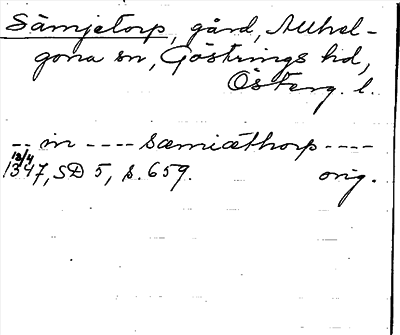 Sämjetorp, gård, Allhel-
gona sn, Göstrings hd,
Österg. l.
-- in ---- Sæmiæthorp ----
13/4
1347, SD 5, s. 659. orig.